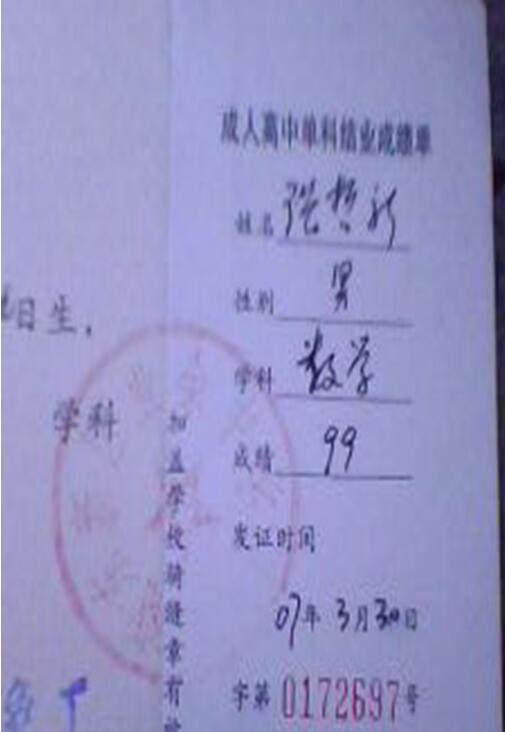 成人高中单科结业成绩单
姓名 张哲新
性别 男
学科 数学
成绩 99
发证时间
07年3月30日
字第0172697号
日生，
学科
加盖学校骑缝章有效